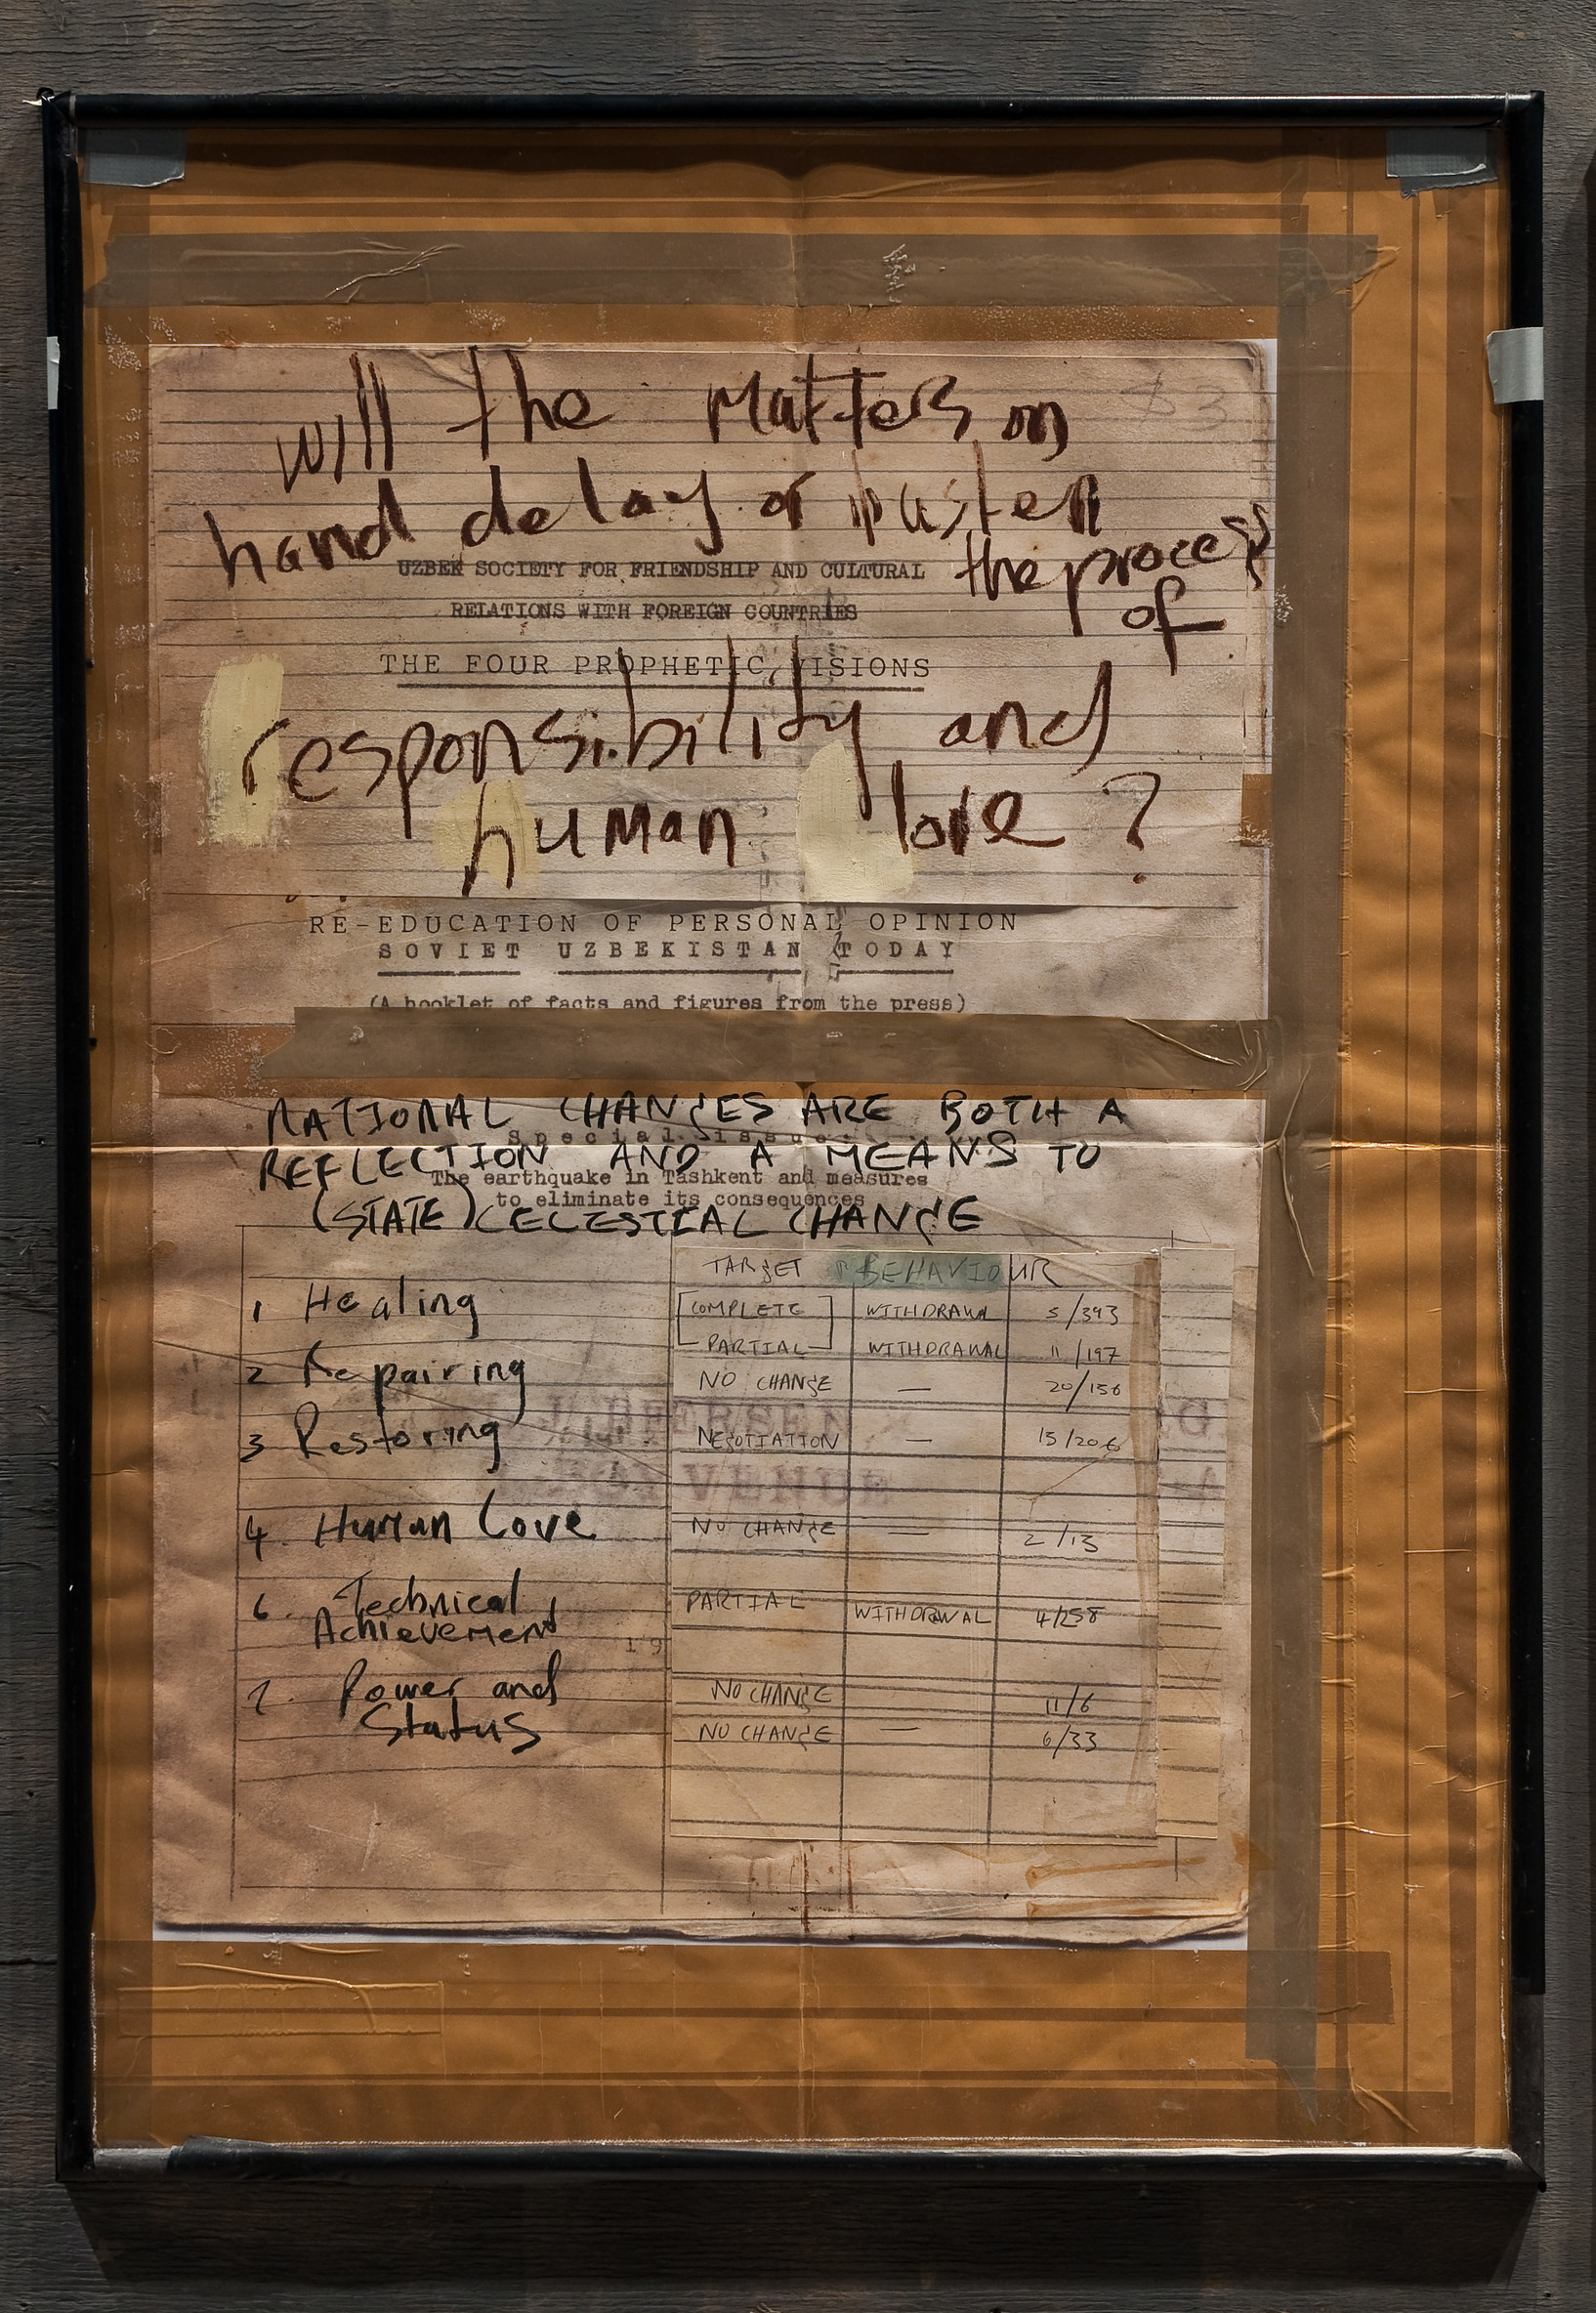 $3
will the Matters on
hand delay or hasten
the process
of
UZBEK SOCIETY FOR FRIENDSHIP AND CULTURAL
RELATIONS WITH FOREIGN COUNTRIES
THE FOUR PROPHETIC VISIONS
responsibility and
human love ?
RE-EDUCATION OF PERSONAL OPINION
SOVIET UZBEKISTAN TODAY
(A booklet of facts and figures from the press)
NATIONAL CHANGES ARE BOTH A
Special issue
REFLECTION AND A MEANS TO
The earthquake in Tashkent and measures
to eliminate its consequences
(STATE) CELESTIAL CHANGE
TARGET BEHAVIOUR
1 Healing COMPLETE WITHDRAWAL 5/393
PARTIAL WITHDRAWAL 11/197
2 Repairing NO CHANGE — 20/156
3 Restoring NEGOTIATION — 15/206
VENUE
4. Human Love NO CHANGE — 2/13
6. Technical PARTIAL WITHDRWAL 4/258
Achievement
19
7. Power and NO CHANGE 11/6
Status NO CHANGE — 6/33